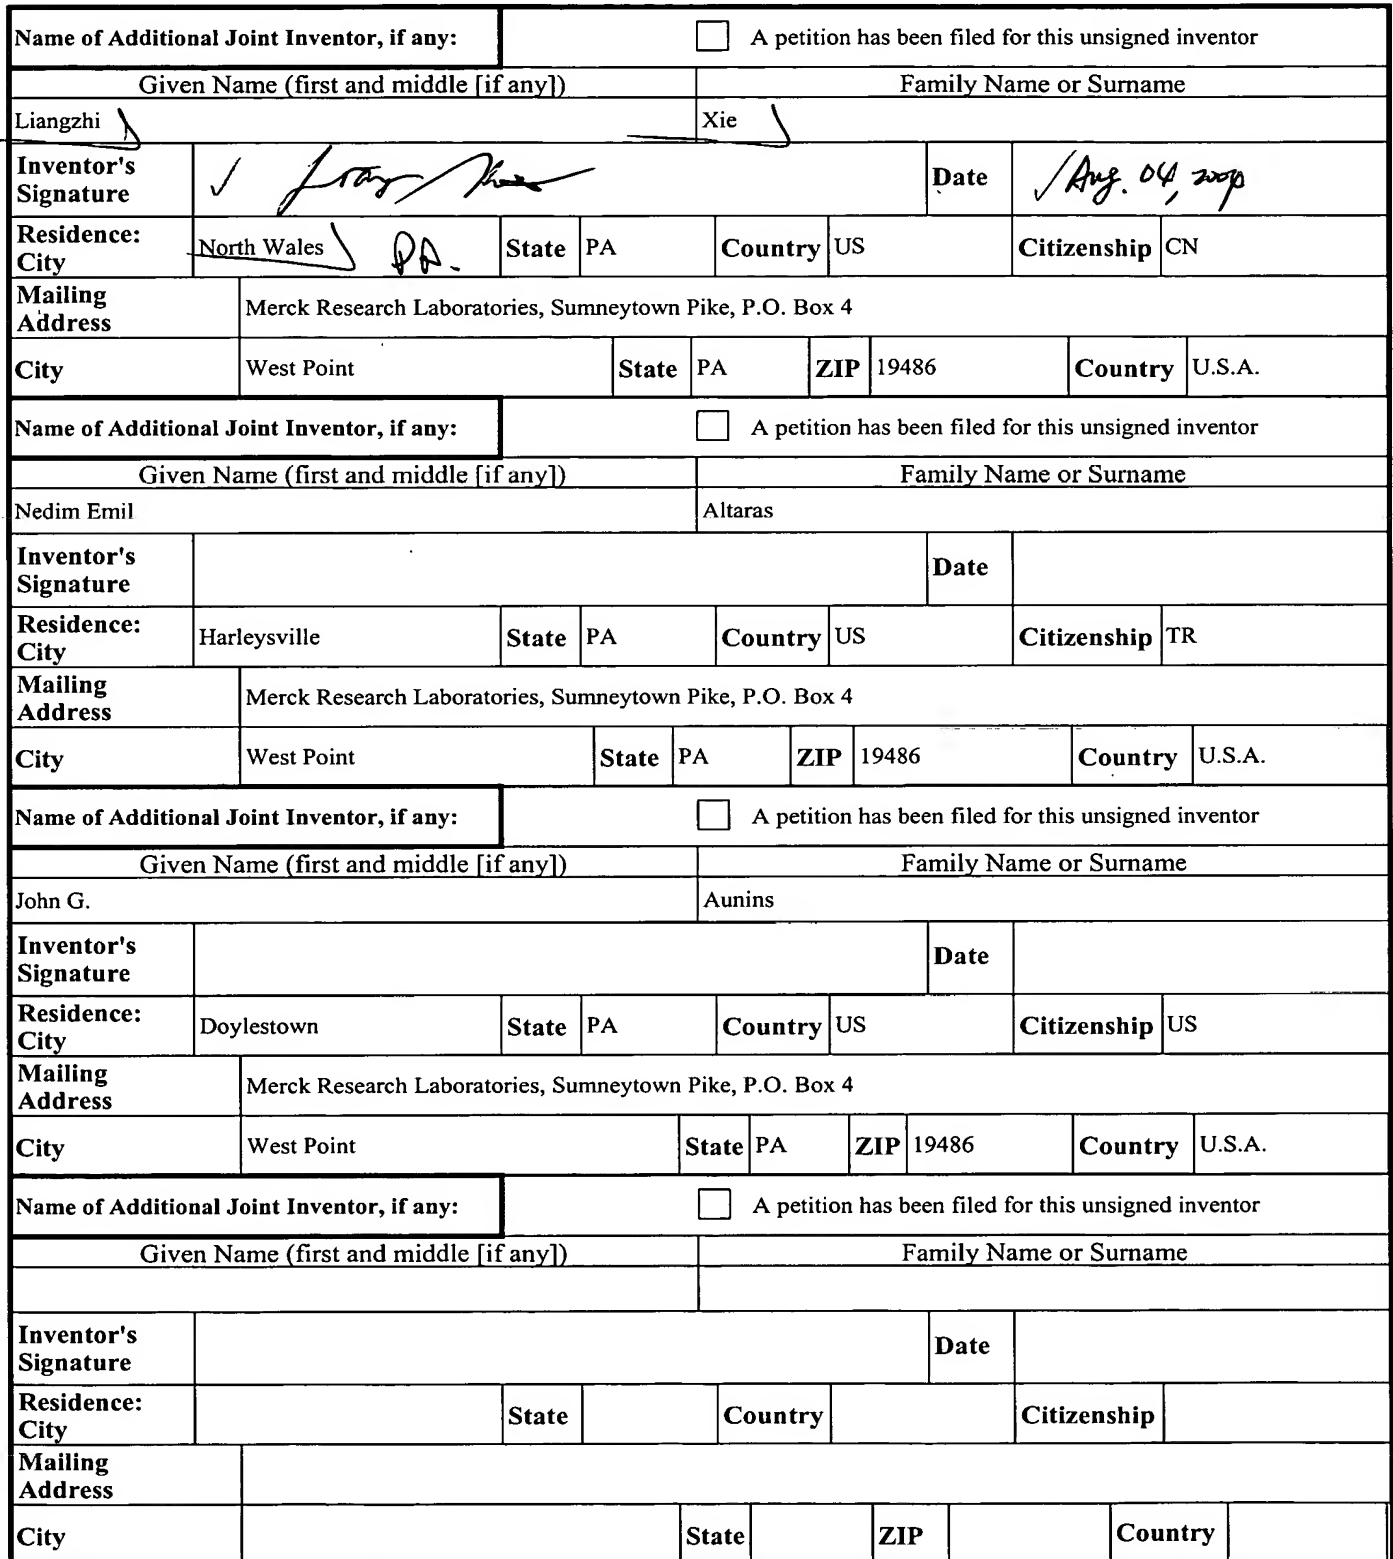 Name of Additional Joint Inventor, if any: A petition has been filed for this unsigned inventor
Given Name (first and middle [if any]) Family Name or Surname
Liangzhi Xie
Inventor's Signature Date Aug. 04,
Residence: City North Wales PA. State PA Country US Citizenship CN
Mailing Address Merck Research Laboratories, Sumneytown Pike, P.O. Box 4
City West Point State PA ZIP 19486 Country U.S.A.
Name of Additional Joint Inventor, if any: A petition has been filed for this unsigned inventor
Given Name (first and middle [if any]) Family Name or Surname
Nedim Emil Altaras
Inventor's Signature Date
Residence: City Harleysville State PA Country US Citizenship TR
Mailing Address Merck Research Laboratories, Sumneytown Pike, P.O. Box 4
City West Point State PA ZIP 19486 Country U.S.A.
Name of Additional Joint Inventor, if any: A petition has been filed for this unsigned inventor
Given Name (first and middle [if any]) Family Name or Surname
John G. Aunins
Inventor's Signature Date
Residence: City Doylestown State PA Country US Citizenship US
Mailing Address Merck Research Laboratories, Sumneytown Pike, P.O. Box 4
City West Point State PA ZIP 19486 Country U.S.A.
Name of Additional Joint Inventor, if any: A petition has been filed for this unsigned inventor
Given Name (first and middle [if any]) Family Name or Surname
Inventor's Signature Date
Residence: City State Country Citizenship
Mailing Address
City State ZIP Country